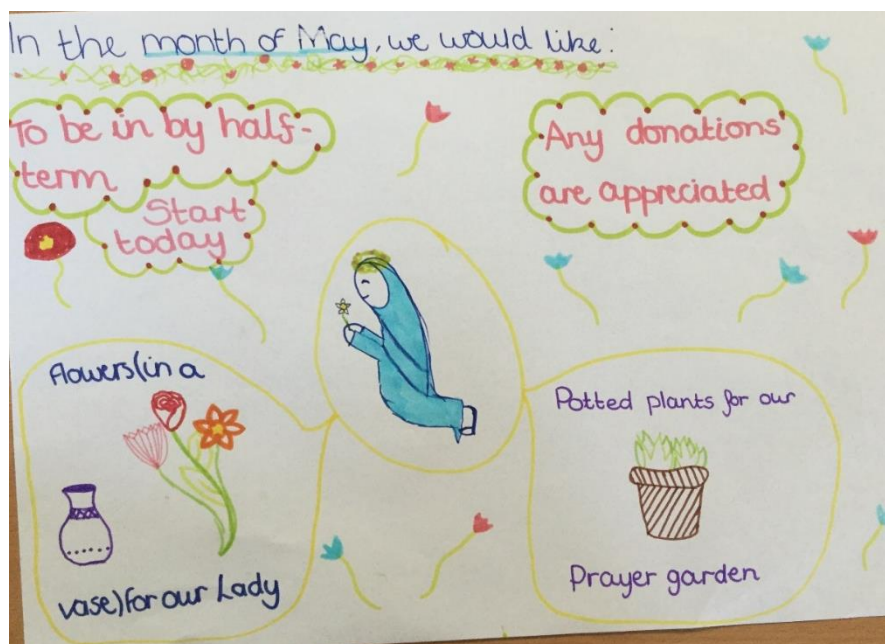 In the month of May, we would like:
To be in by half-
term
Start
today
Any donations
are appreciated
flowers(in a
vase)for our Lady
Potted plants for our
Prayer garden